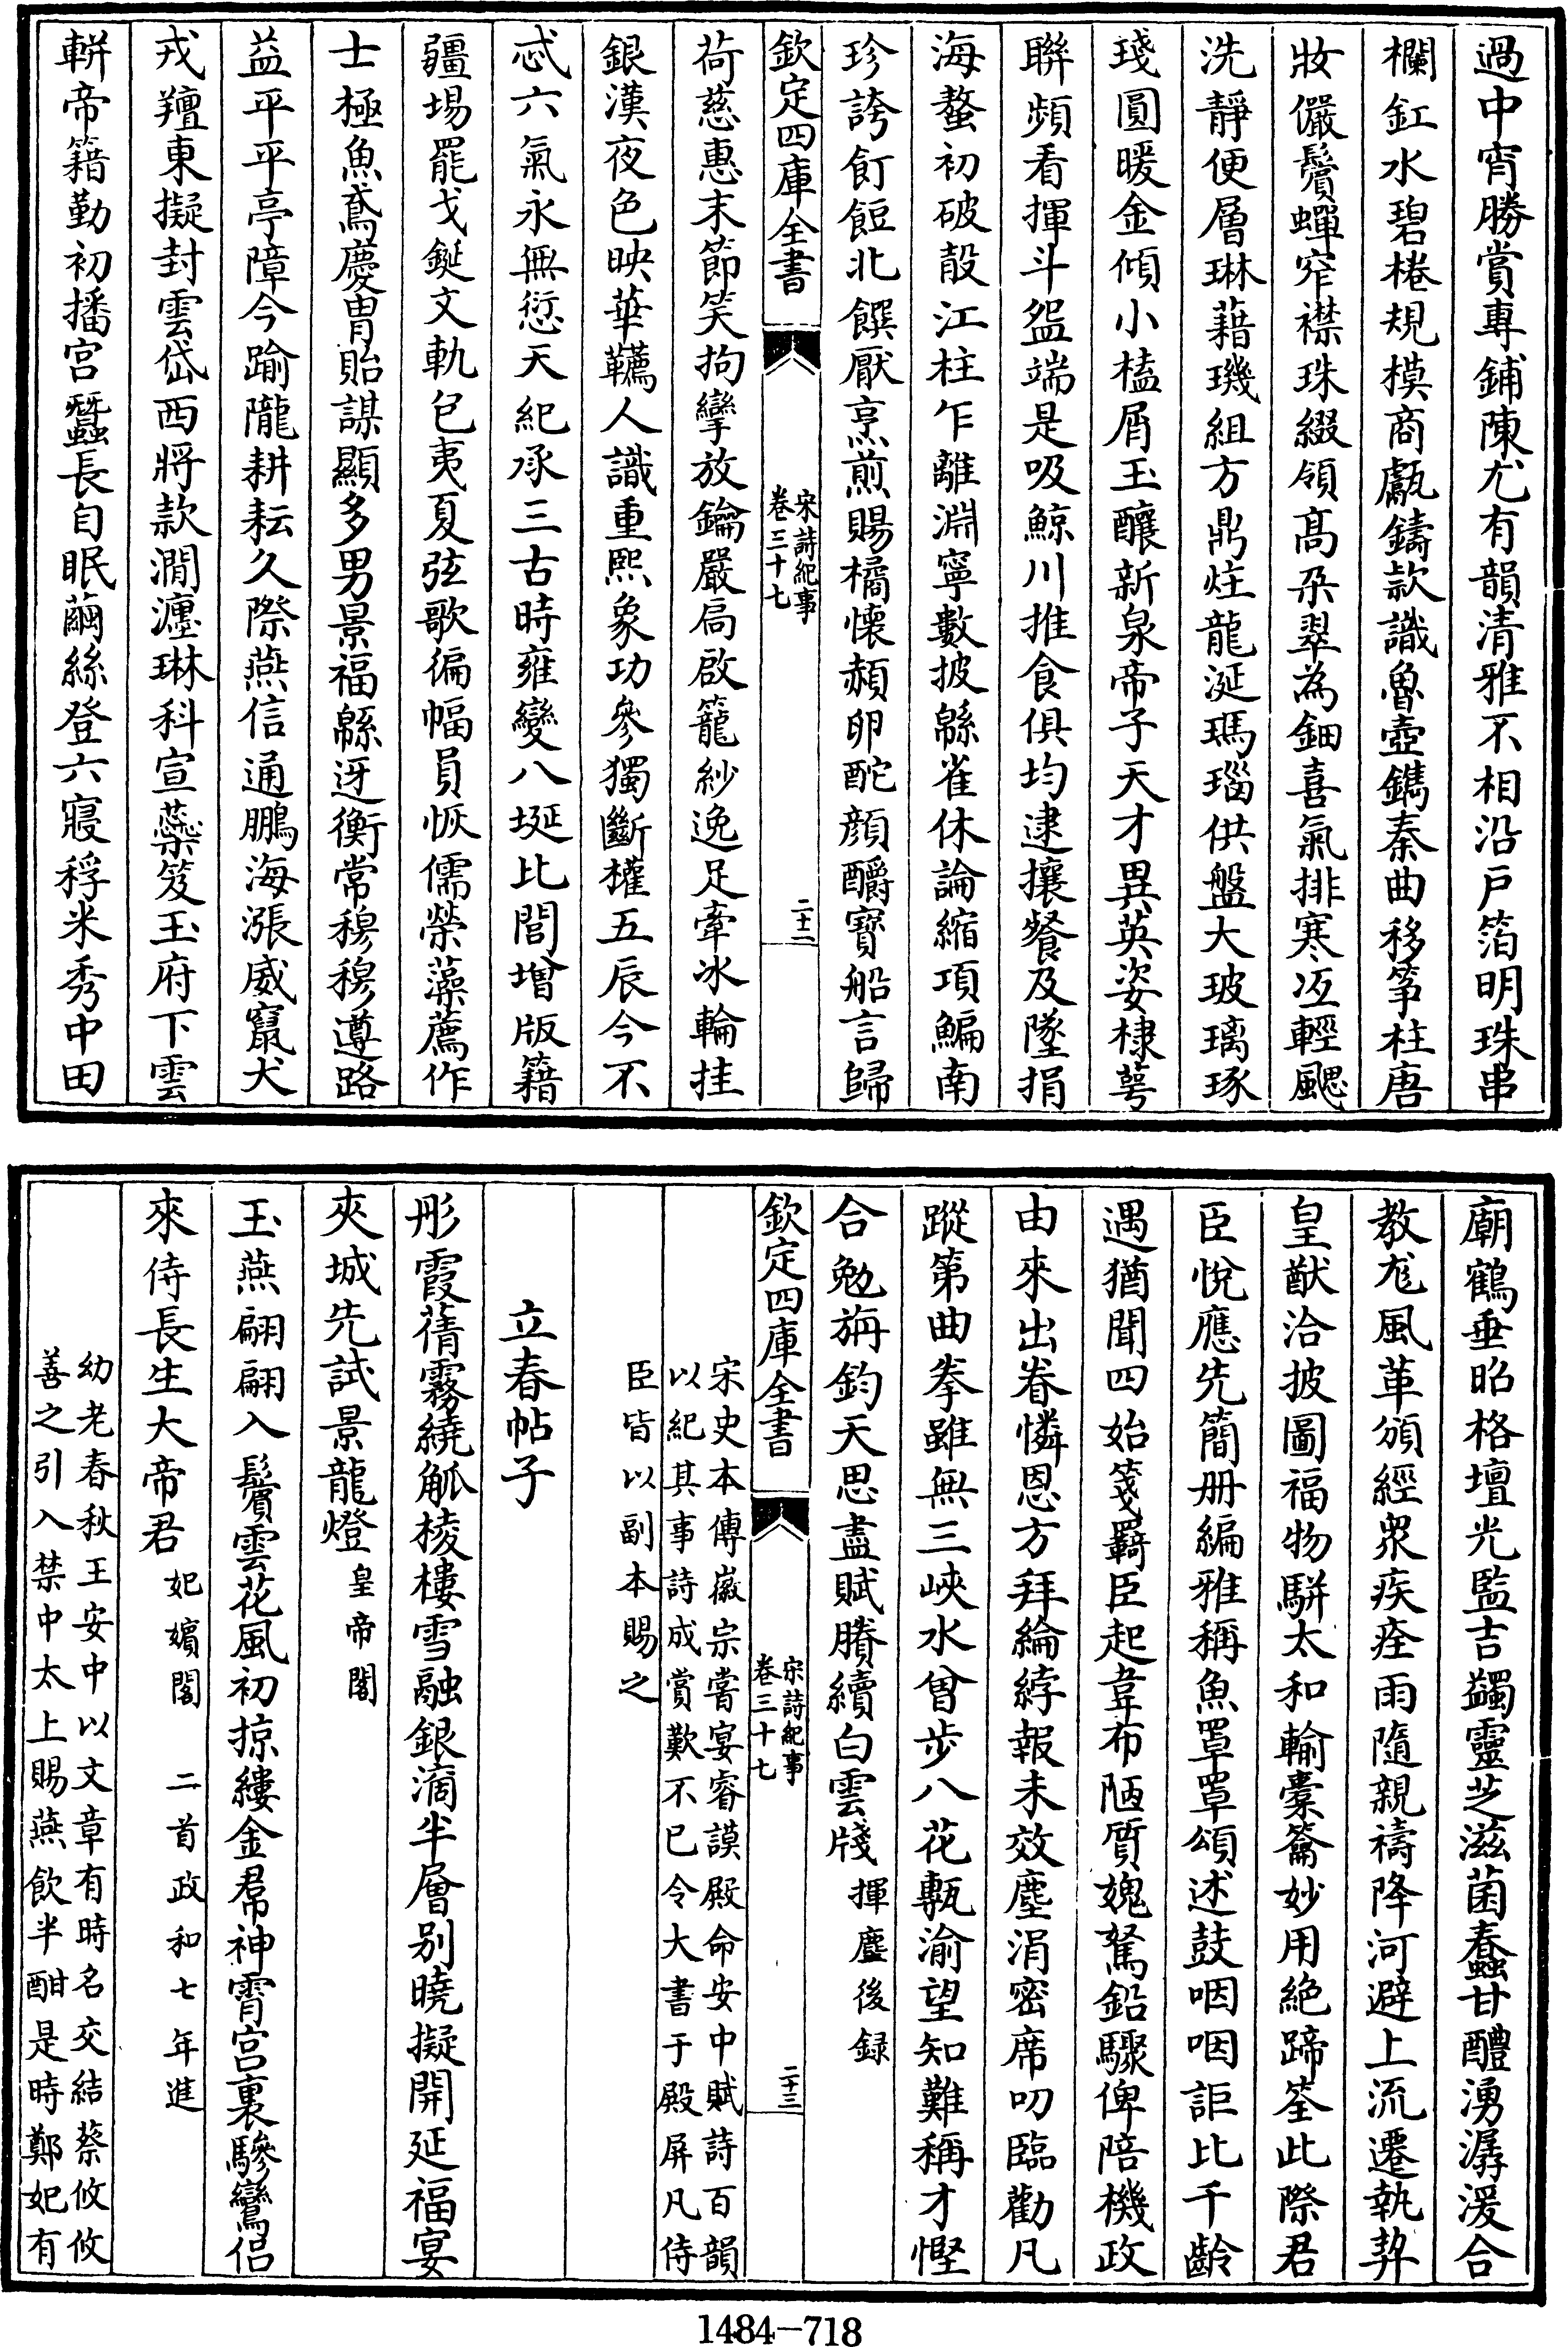 過中宵勝賞專鋪陳尤有韻清雅不相沿戶箔明珠串
欄釭水碧棬規模商甗鑄欵識魯壺鐫秦曲移筝柱唐
妝儼鬢蟬窄襟珠綴領髙朶翠為鈿喜氣排寒沍輕颸
洗靜便層琳藉璣組方鼎炷龍涎瑪瑙供盤大玻璃琢
琖圓暖金傾小榼屑玉釀新泉帝子天才異英姿棣萼
聯頻看揮斗盌端是吸鯨川推食俱均逮攘餐及墜捐
海螯初破殼江柱乍離淵寧數披緜雀休論縮項鯿南
珍誇飣餖北饌厭烹煎賜橘懷頳卵酡顔釂寳船言歸
欽定四庫全書
宋詩紀事
卷三十七
二十二
荷慈惠末節笑拘攣放鑰嚴扃啟籠紗逸足牽冰輪挂
銀漢夜色映華韉人識重熙象功參獨斷權五辰今不
忒六氣永無愆天紀承三古時雍變八埏比閭增版籍
疆埸罷戈鋋文軌包夷夏弦歌徧幅員恢儒榮藻薦作
士極魚鳶慶胄貽謀顯多男景福緜迓衡常穆穆遵路
益平平亭障今踰隴耕耘久際燕信通鵬海漲威竄犬
戎羶東擬封雲岱西將款澗瀍琳科宣蘂笈玉府下雲
軿帝籍勤初播宫蠶長自眠繭絲登六寢稃米秀中田
廟鶴垂昭格壇光監吉蠲靈芝滋菌蠢甘醴湧潺湲合
教尨風革頒經衆疾痊雨隨親禱降河避上流遷執契
皇猷洽披圖福物駢太和輸橐籥妙用絶蹄筌此際君
臣悅應先簡册編雅稱魚罩罩頌述鼓咽咽詎比千齡
遇猶聞四始箋羇臣起韋布陋質媿駑鉛驟俾陪機政
由來出眷憐恩方拜綸綍報未效塵涓密席叨臨勸凡
蹤第曲拳雖無三峽水曾步八花甎渝望知難稱才慳
合勉旃鈞天思盡賦賸續白雲牋 揮麈後録
欽定四庫全書
宋詩紀事
卷三十七
二十三
宋史本傳徽宗嘗宴睿謨殿命安中賦詩百韻
以紀其事詩成賞歎不已令大書于殿屏凡侍
臣皆以副本賜之
立春帖子
彤霞蒨霧繞觚棱樓雪融銀滴半層别曉擬開延福宴
夾城先試景龍燈 皇帝閣
玉燕翩翩入鬢雲花風初掠縷金帬神霄宫裏驂鸞侣
來侍長生大帝君 妃嬪閣 二首政和七年進
幼老春秋王安中以文章有時名交結蔡攸攸
善之引入禁中太上賜燕飲半酣是時鄭妃有
1484-718